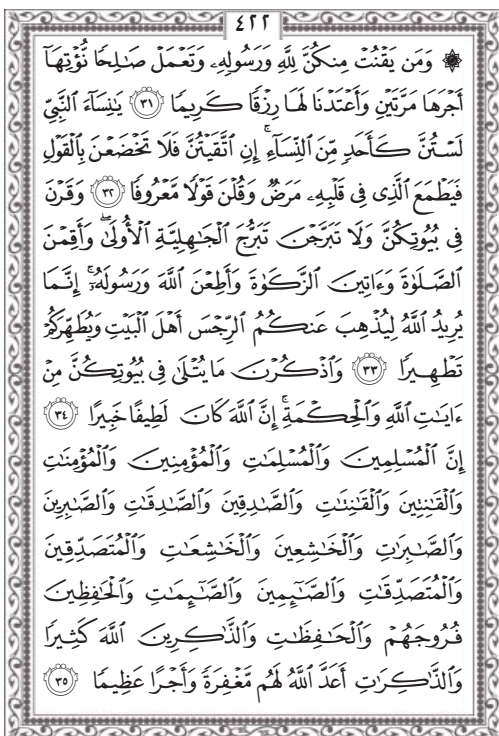 ٤٢٢
۞ وَمَن يَقْنُتْ مِنكُنَّ لِلَّهِ وَرَسُولِهِۦ وَتَعْمَلْ صَـٰلِحًا نُّؤْتِهَآ
أَجْرَهَا مَرَّتَيْنِ وَأَعْتَدْنَا لَهَا رِزْقًا كَرِيمًا ٣١ يَـٰنِسَآءَ ٱلنَّبِيِّ
لَسْتُنَّ كَأَحَدٍ مِّنَ ٱلنِّسَآءِ ۚ إِنِ ٱتَّقَيْتُنَّ فَلَا تَخْضَعْنَ بِٱلْقَوْلِ
فَيَطْمَعَ ٱلَّذِى فِى قَلْبِهِۦ مَرَضٌ وَقُلْنَ قَوْلًا مَّعْرُوفًا ٣٢ وَقَرْنَ
فِى بُيُوتِكُنَّ وَلَا تَبَرَّجْنَ تَبَرُّجَ ٱلْجَـٰهِلِيَّةِ ٱلْأُولَىٰ ۖ وَأَقِمْنَ
ٱلصَّلَوٰةَ وَءَاتِينَ ٱلزَّكَوٰةَ وَأَطِعْنَ ٱللَّهَ وَرَسُولَهُۥٓ ۚ إِنَّمَا
يُرِيدُ ٱللَّهُ لِيُذْهِبَ عَنكُمُ ٱلرِّجْسَ أَهْلَ ٱلْبَيْتِ وَيُطَهِّرَكُمْ
تَطْهِيرًا ٣٣ وَٱذْكُرْنَ مَا يُتْلَىٰ فِى بُيُوتِكُنَّ مِنْ
ءَايَـٰتِ ٱللَّهِ وَٱلْحِكْمَةِ ۚ إِنَّ ٱللَّهَ كَانَ لَطِيفًا خَبِيرًا ٣٤
إِنَّ ٱلْمُسْلِمِينَ وَٱلْمُسْلِمَـٰتِ وَٱلْمُؤْمِنِينَ وَٱلْمُؤْمِنَـٰتِ
وَٱلْقَـٰنِتِينَ وَٱلْقَـٰنِتَـٰتِ وَٱلصَّـٰدِقِينَ وَٱلصَّـٰدِقَـٰتِ وَٱلصَّـٰبِرِينَ
وَٱلصَّـٰبِرَٰتِ وَٱلْخَـٰشِعِينَ وَٱلْخَـٰشِعَـٰتِ وَٱلْمُتَصَدِّقِينَ
وَٱلْمُتَصَدِّقَـٰتِ وَٱلصَّـٰٓئِمِينَ وَٱلصَّـٰٓئِمَـٰتِ وَٱلْحَـٰفِظِينَ
فُرُوجَهُمْ وَٱلْحَـٰفِظَـٰتِ وَٱلذَّٰكِرِينَ ٱللَّهَ كَثِيرًا
وَٱلذَّٰكِرَٰتِ أَعَدَّ ٱللَّهُ لَهُم مَّغْفِرَةً وَأَجْرًا عَظِيمًا ٣٥